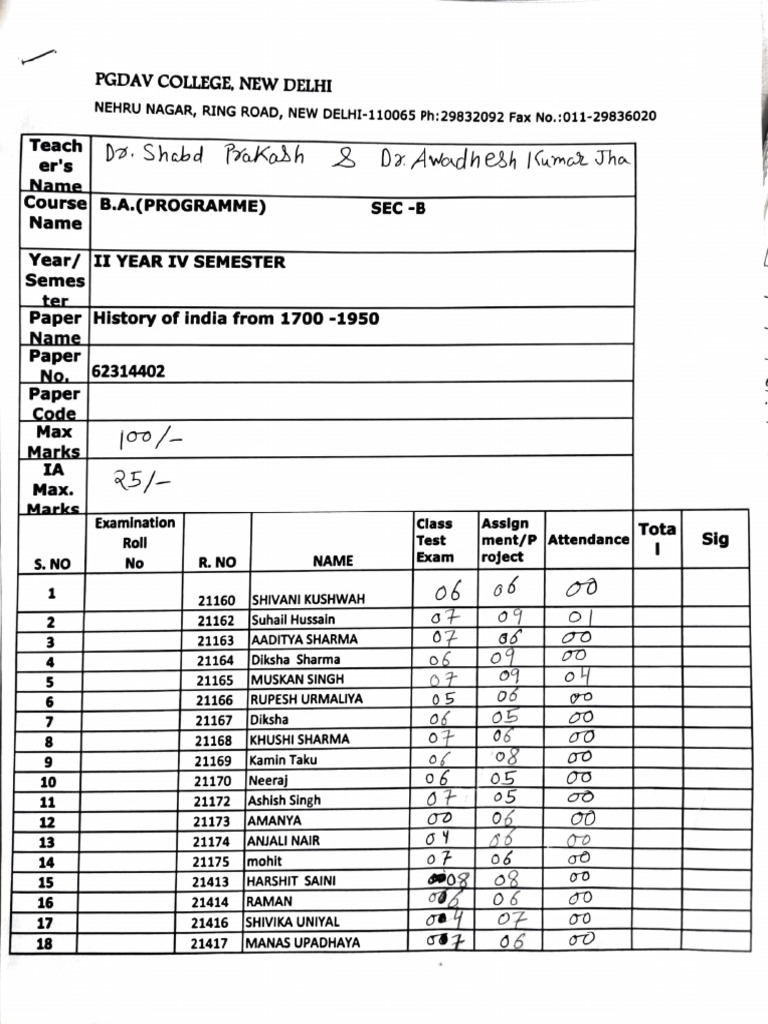 PGDAV COLLEGE, NEW DELHI
NEHRU NAGAR, RING ROAD, NEW DELHI-110065 Ph:29832092 Fax No.:011-29836020
Teach er's Name Dr. Shabd Prakash & Dr. Awadhesh Kumar Jha
Course Name B.A.(PROGRAMME) SEC -B
Year/ Semes ter II YEAR IV SEMESTER
Paper Name History of india from 1700 -1950
Paper No. 62314402
Paper Code
Max Marks 100/-
IA Max. Marks 25/-
S. NO Examination Roll No R. NO NAME Class Test Exam Assign ment/P roject Attendance Tota l Sig
1 21160 SHIVANI KUSHWAH 06 06 00
2 21162 Suhail Hussain 07 09 01
3 21163 AADITYA SHARMA 07 06 00
4 21164 Diksha Sharma 06 09 00
5 21165 MUSKAN SINGH 07 09 04
6 21166 RUPESH URMALIYA 05 06 00
7 21167 Diksha 06 05 00
8 21168 KHUSHI SHARMA 07 06 00
9 21169 Kamin Taku 06 08 00
10 21170 Neeraj 06 05 00
11 21172 Ashish Singh 07 05 00
12 21173 AMANYA 00 06 00
13 21174 ANJALI NAIR 04 06 00
14 21175 mohit 07 06 00
15 21413 HARSHIT SAINI 08 08 00
16 21414 RAMAN 06 06 00
17 21416 SHIVIKA UNIYAL 04 07 00
18 21417 MANAS UPADHAYA 07 06 00